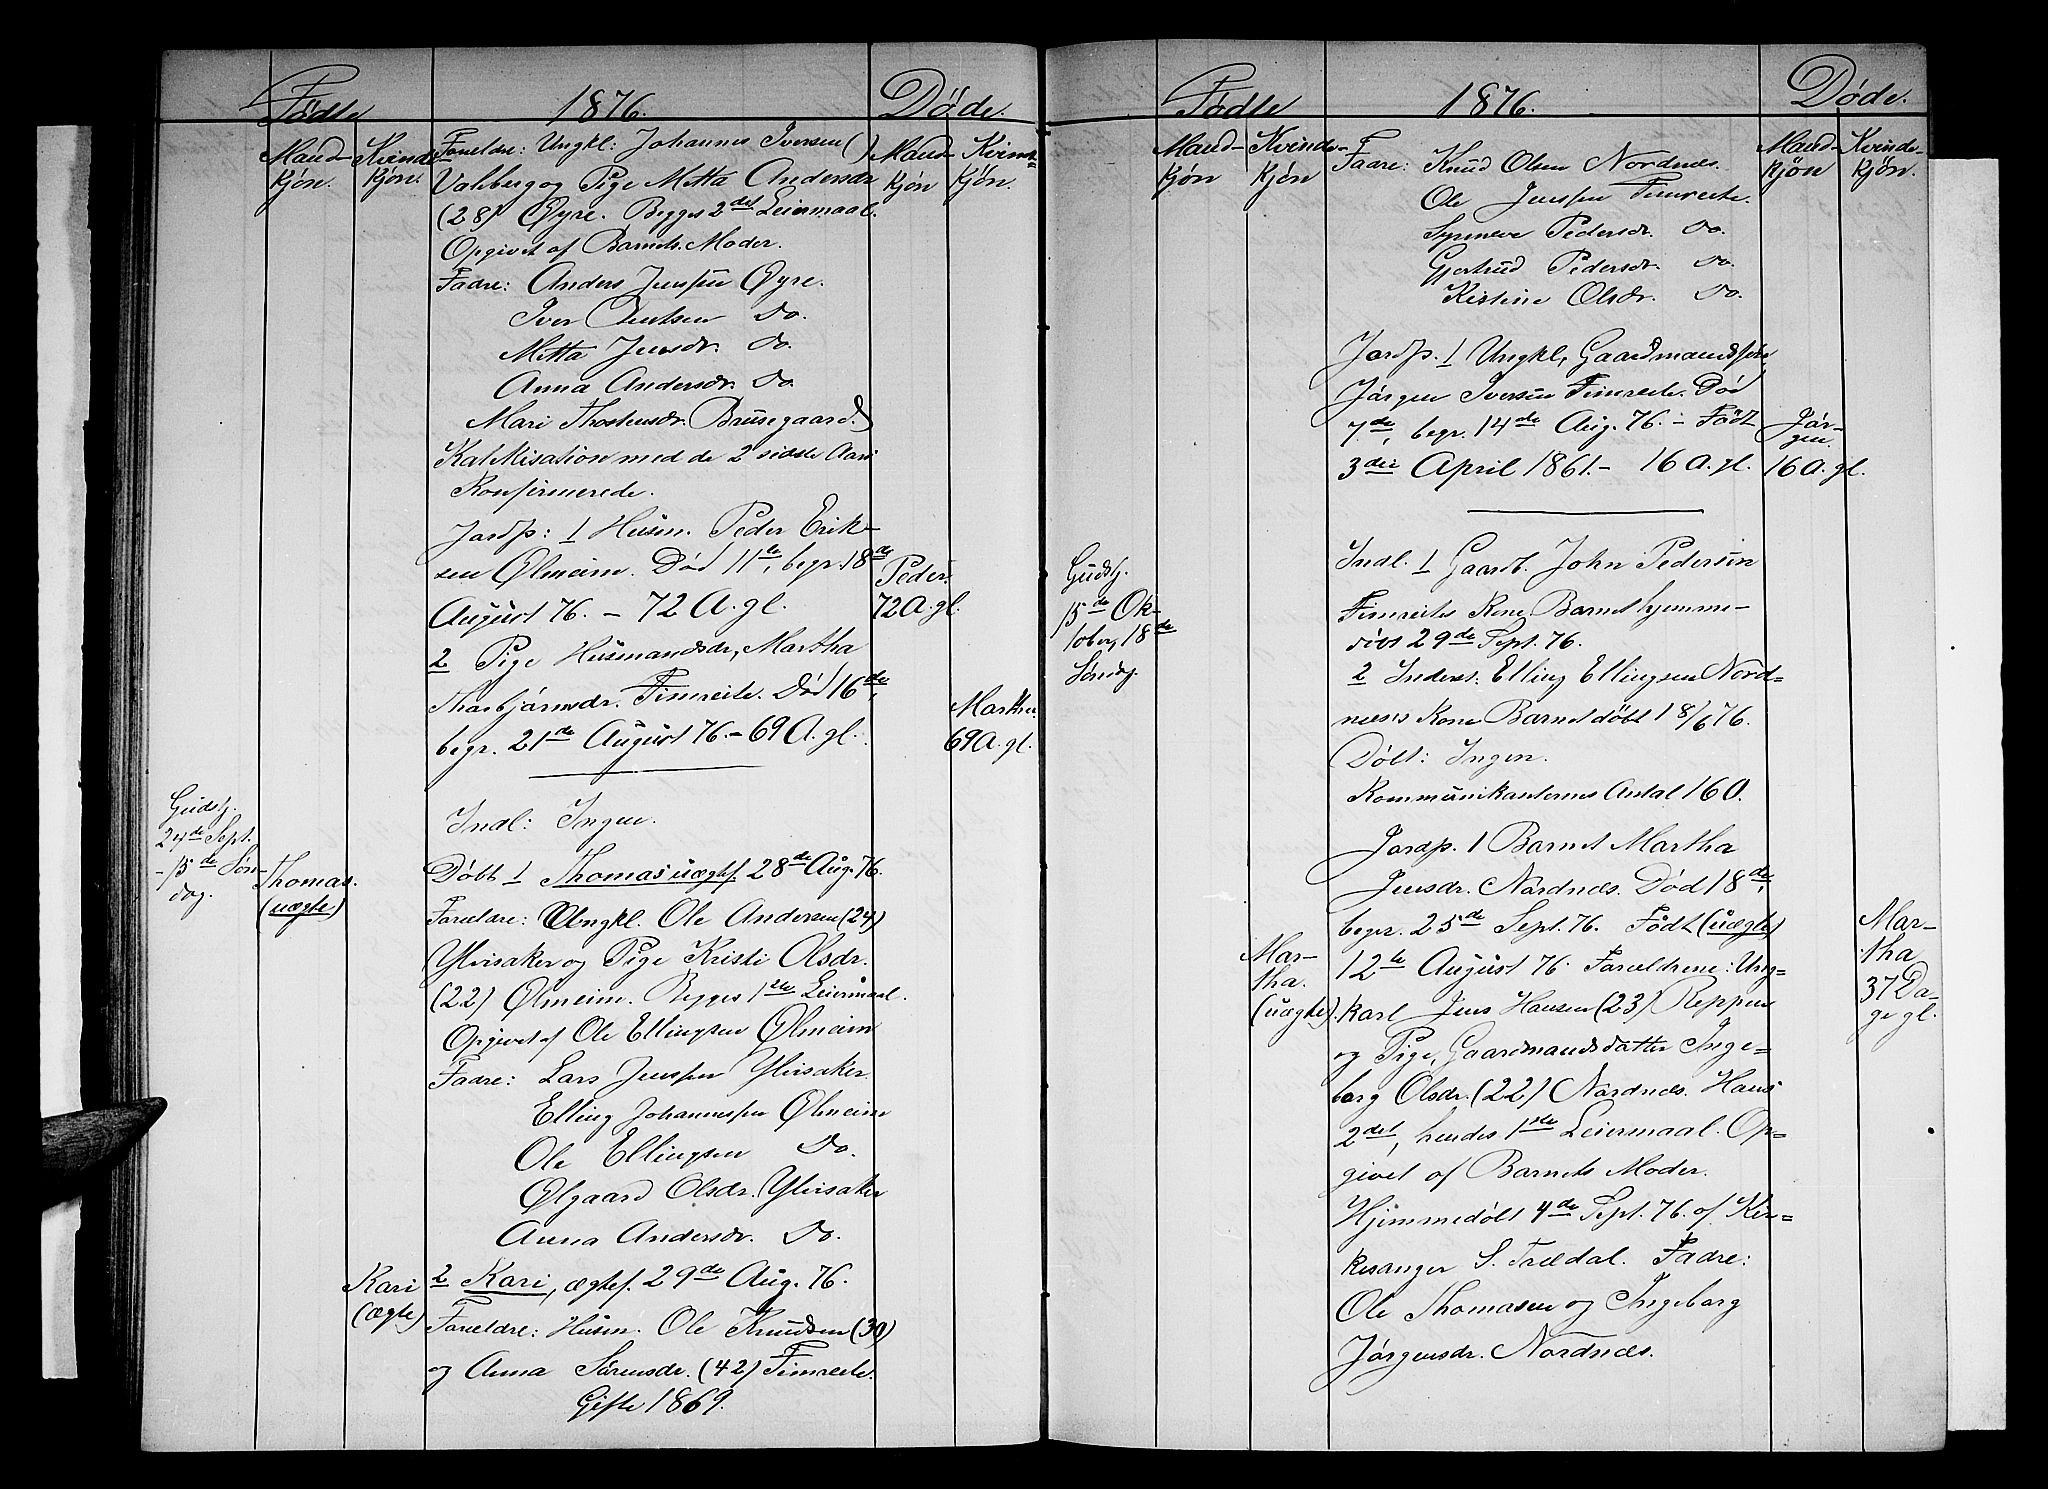 Fødte
1876.
Døde.
Mand-
kjøn.
Kvinde-
kjøn.
Forældre: Ungkl: Johannes Iversen ( )
Valberg og Pige Mitta Andersdr
(28) Øyre. Begges 2det Leiermaal.
Opgivet af Barnets Moder.
Fadre: Anders Jenssen Øyre.
Iver Do.
Mitta Jensdr. do.
Anna Andersdr. Do.
Mari Thostensdr. Brusegaard.
Katekisation med de 2 sidste Aars
Konfirmerede.
Jordf: 1 Husm. Peder Erik-
sen Ølmeim. Død 11te, begr. 18de
August 76. – 72 A. gl.
2 Pige Husmandsdr, Martha
Thorbjörnsdr. Fimreite. Død 16de,
begr. 21de August 76. – 69 A. gl.
Mand-
kjøn
Kvinde-
kjøn.
Peder.
72 A. gl.
Martha.
69 A. gl.
Gudstj.
24de Sept.
15de Søn-
dag.
Thomas.
(uægte)
Indl: Ingen.
Døbt 1 Thomas uægtef. 28de Aug. 76.
Forældre: Ungkl. Ole Andersen (24)
Ylvisaker og Pige Kristi Olsdr.
(22) Ølmeim. Begges 1ste Leiermaal.
Opgivet af Ole Ellingsen Ølmeim
Fadre: Lars Jenssen Ylvisaker
Elling Johannessen Ølmeim
Ole Ellingsen Do.
Ølgaard Olsdr. Ylvisaker
Anna Andersdr. Do.
Kari
(ægte)
2 Kari, ægtef. 29de Aug. 76.
Forældre: Husm. Ole Knudsen (30)
og Anna Sørensdr. (42) Fimreite.
Gifte 1869.
Fødte
1876.
Døde.
Mand-
kjøn
Kvinde-
kjøn
Fadre: Knud Olsen Nordnæs.
Ole Jenssen Fimreite.
Synneve Pedersdr. Do.
Gjertrud Pedersdr. Do.
Kistine Olsdr. Do.
Mand-
kjøn
Kvinde-
kjøn.
Jordf. 1 Ungkl, Gaardmandssøn
Jörgen Iversen Fimreite. Død
7de, begr. 14de Aug. 76. – Født
3die April 1861. – 16 A. gl.
Jör-
gen.
16 A. gl.
Gudstj.
15de Ok-
tober, 18de
Søndag.
Indl. 1 Gaardb. John Pedersen
Fimreites Kone Barnet hjemme-
døbt 29de Sept. 76.
2 Inderst: Elling Ellingsen Nord-
næsis Kone Barnet døbt 18/6 76.
Døbt: Ingen.
Kommunikanternes Antal 160.
Jordf. 1 Barnet Martha
Jensdr. Nordnæs. Død 18de,
begr. 25de Sept. 76. Født (uægte)
12te August 76. Forældrene: Ung-
karl Jens Hansen (23) Reppen
og Pige, Gaardmandsdatter Inge-
borg Olsdr. (22) Nordnæs. Hans
2det, hendes 1ste Leiermaal. Op-
givet af Barnets Moder.
Hjemmedøbt 4de Sept. 76. af Kir-
kesanger S. Trædal. Fadre:
Ole Thomassen og Ingeborg
Jørgensdr. Nordnæs.
Mar-
tha.
(uægte).
Mar-
tha
37 Da-
ge gl.